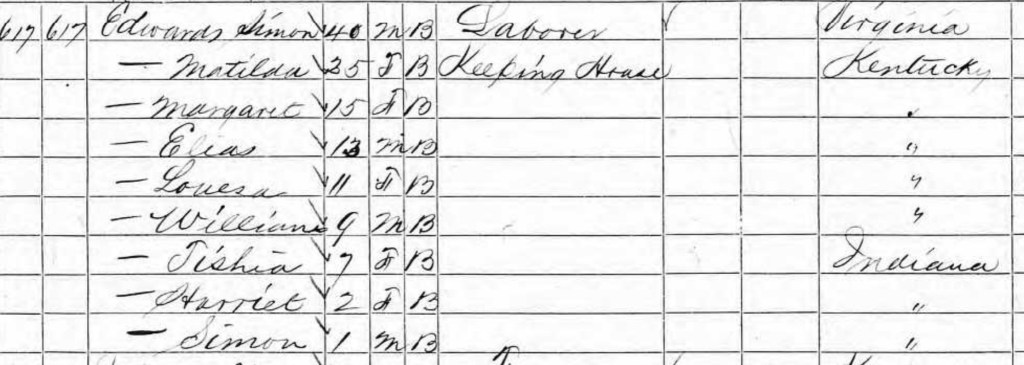 617 617 Edwards, Simon 40 M B Laborer Virginia
— Matilda 25 F B Keeping House Kentucky
— Margaret 15 F B "
— Elias 13 M B "
— Louesa 11 F B "
— William 9 M B "
— Tishia 7 F B Indiana
— Harriet 2 F B "
— Simon 1 M B "